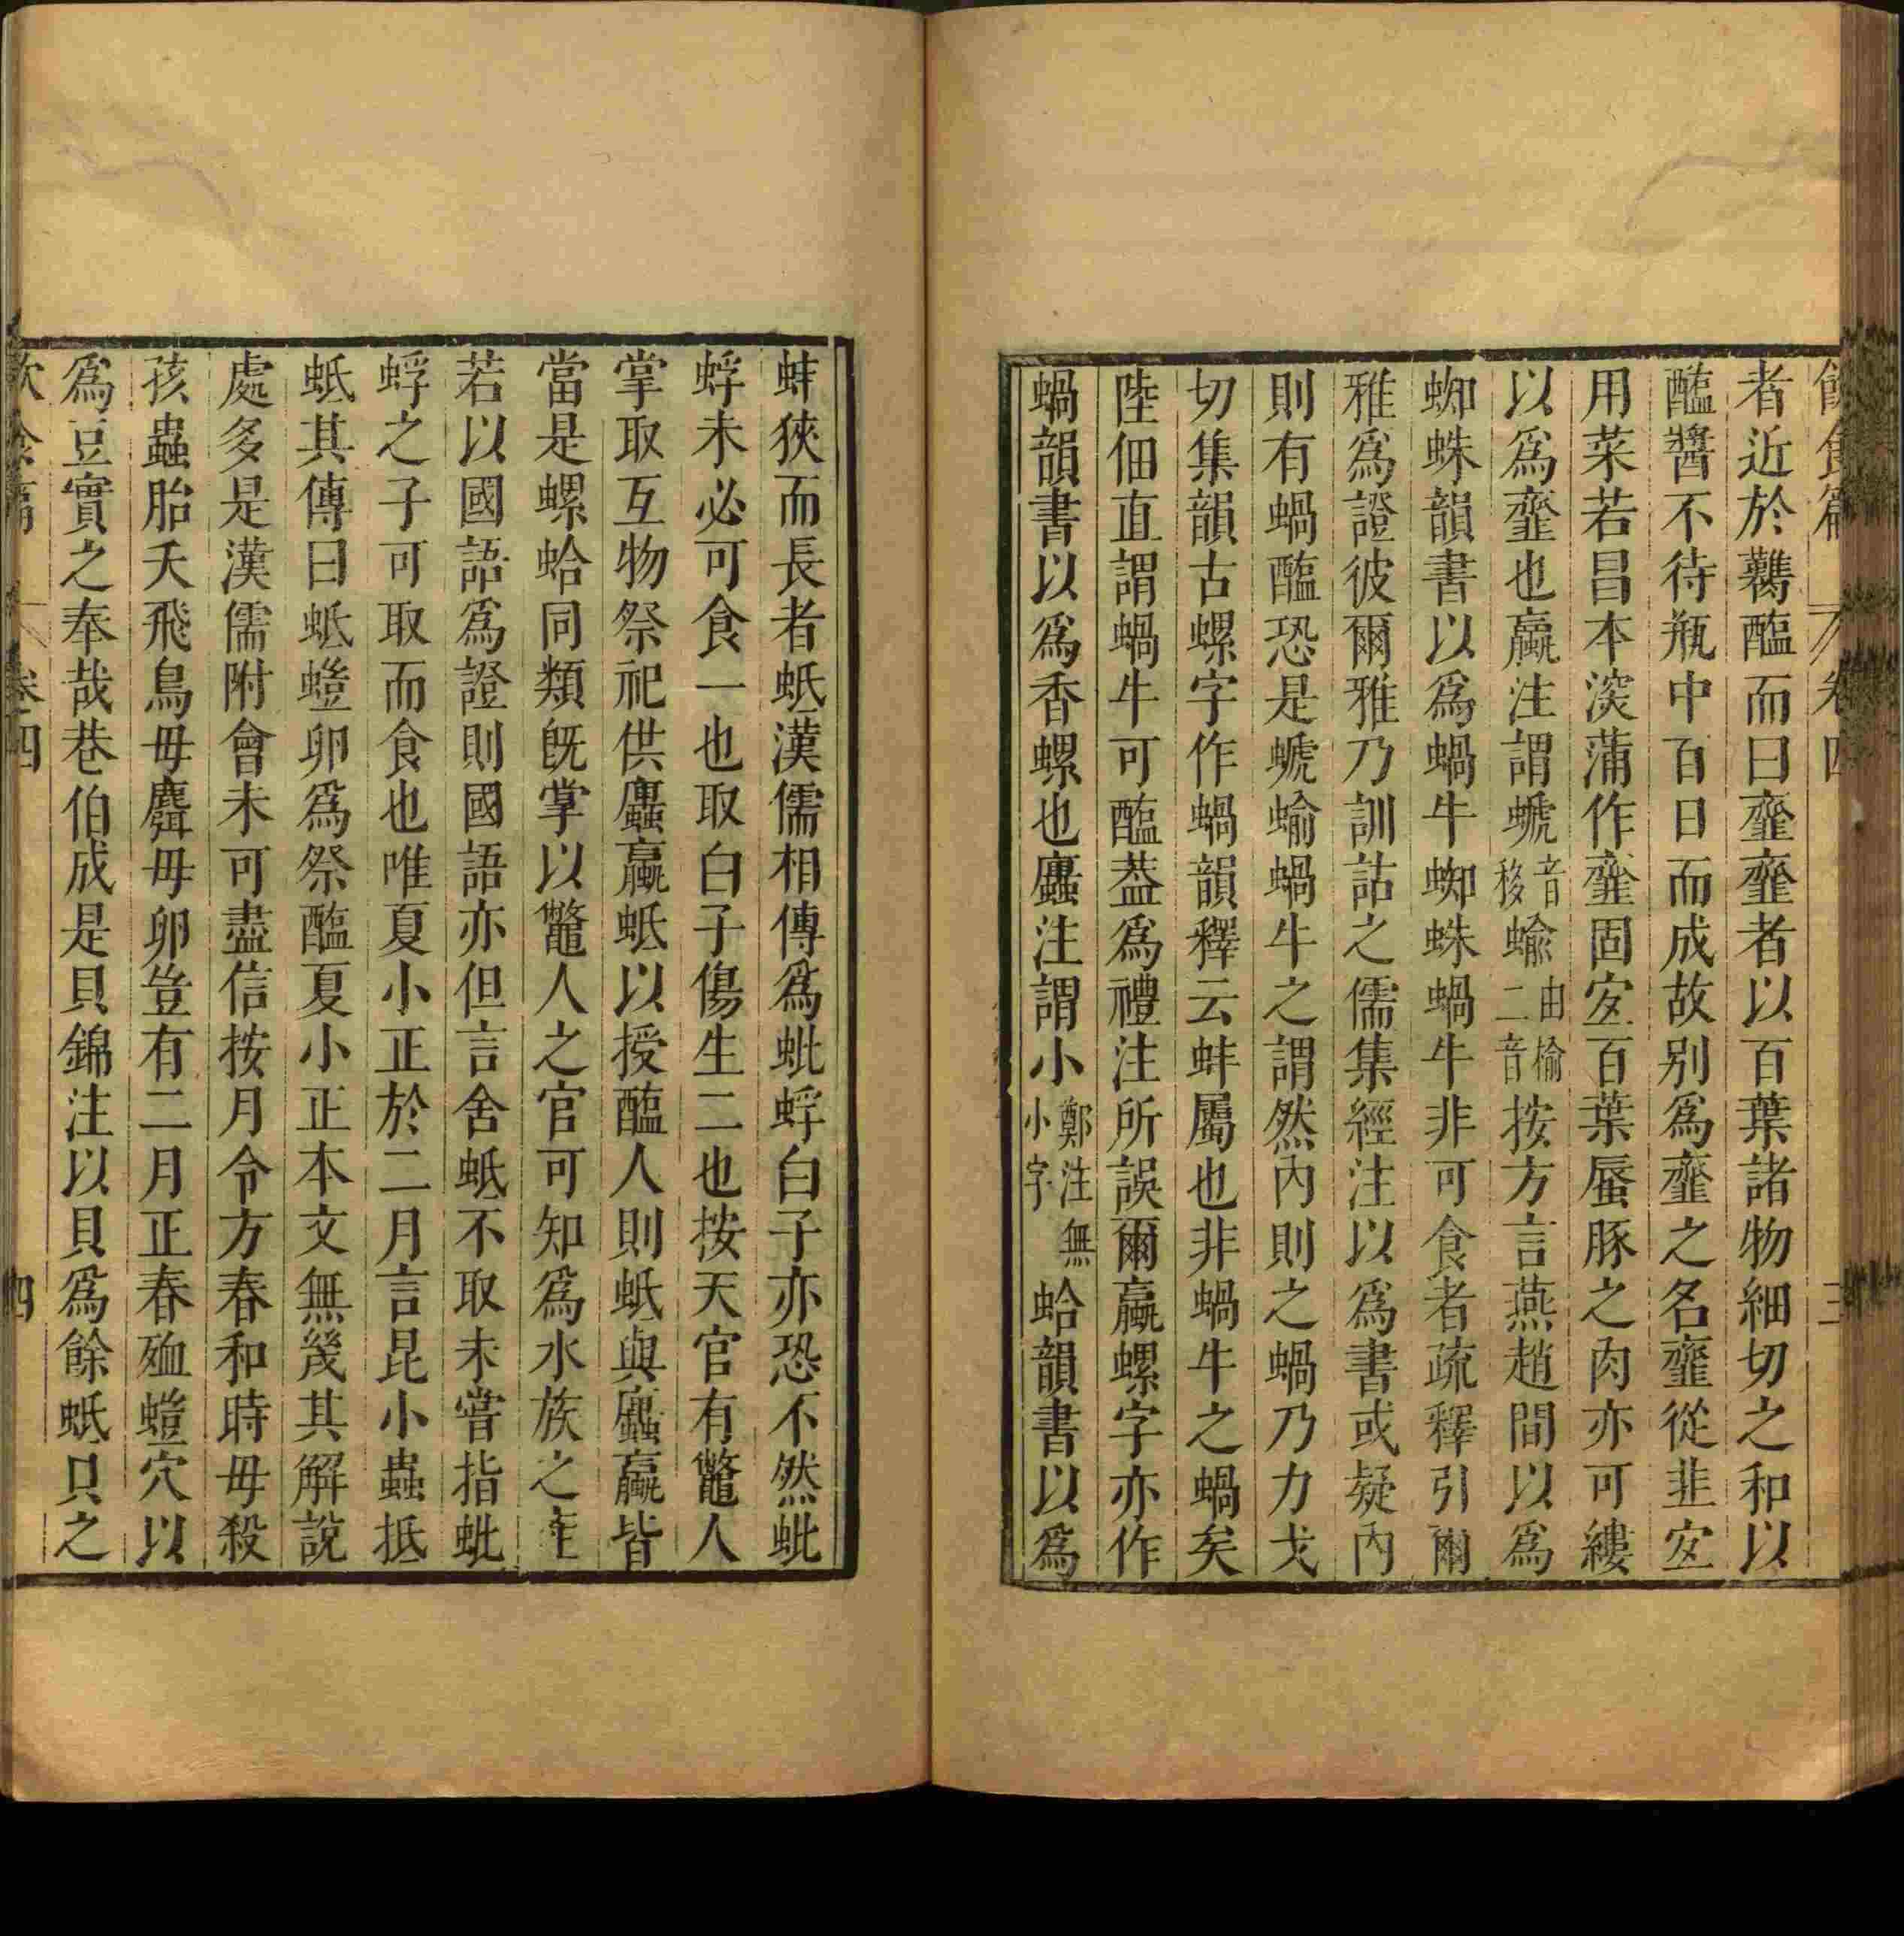 飲食篇 卷四 三
者近於鸈醢而曰虀虀者以百葉諸物細切之和以
醢醬不待瓶中百日而成故别為虀之名虀從韭宐
用菜若昌本深蒲作虀固宐百葉蜃豚之肉亦可縷
以為虀也蠃注謂螔音移蝓由榆二音按方言燕趙間以為
蜘蛛韻書以為蝸牛蜘蛛蝸牛非可食者疏釋引爾
雅為證彼爾雅乃訓詁之儒集經注以為書或疑內
則有蝸醢恐是螔蝓蝸牛之謂然內則之蝸乃力戈
切集韻古螺字作蝸韻釋云蚌屬也非蝸牛之蝸矣
陸佃直謂蝸牛可醢葢為禮注所誤爾蠃螺字亦作
蝸韻書以為香螺也蠯注謂小鄭注無小字蛤韻書以為
蚌狹而長者蚳漢儒相傳為蚍蜉白子亦恐不然蚍
蜉未必可食一也取白子傷生二也按天官有鼈人
掌取互物祭祀供蠯蠃蚳以授醢人則蚳與蠯蠃皆
當是螺蛤同類旣掌以鼈人之官可知為水族之
若以國語為證則國語亦但言舍蚳不取未嘗指蚍
蜉之子可取而食也唯夏小正於二月言昆小蟲抵
蚳其傳曰蚳螘卵為祭醢夏小正本文無幾其解說
處多是漢儒附會未可盡信按月令方春和時毋殺
孩蟲胎夭飛鳥毋麛毋卵豈有二月正春殈螘穴以
為豆實之奉哉巷伯成是貝錦注以貝為餘蚳只之
飲食篇 卷四 四